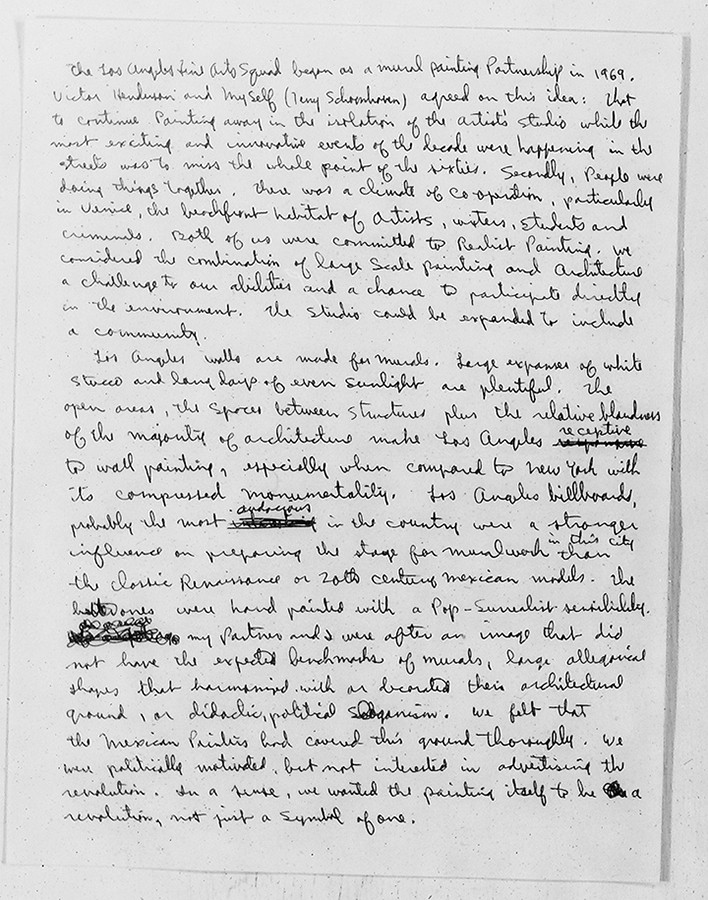 The Los Angeles Fine Arts Squad began as a mural painting Partnership in 1969.
Victor Henderson and Myself (Terry Schoonhoven) agreed on this idea: That
to continue Painting away in the isolation of the Artist's Studio while the
most exciting and innovative events of the decade were happening in the
streets was to miss the whole point of the sixties. Secondly, People were
doing things together. There was a climate of Co-operation, particularly
in Venice, the beachfront habitat of Artists, writers, Students and
criminals. Both of us were committed to Realist Painting. We
considered the combination of large Scale painting and Architecture
a challenge to our abilities and a chance to participate directly
in the environment. The Studio could be expanded to include
a community.
Los Angeles walls are made for murals. Large expanses of white
Stucco and long days of even Sunlight are plentiful. The
open areas, the spaces between Structures plus the relative blandness
receptive
of the majority of architecture make Los Angeles
to wall painting, especially when compared to New York with
its compressed monumentality. Los Angeles billboards,
audacious
probably the most in the country were a stronger
in this city
influence on preparing the stage for muralwork than
the classic Renaissance or 20th century Mexican models. The
ones were hand painted with a Pop-Surrealist sensibility.
my Partner and I were after an image that did
not have the expected benchmarks of murals, large allegorical
shapes that harmonized with or decorated their architectural
ground, or didactic, political Sloganism. We felt that
the Mexican Painters had covered this ground thoroughly. We
were politically motivated, but not interested in advertising the
revolution. In a sense, we wanted the painting itself to be a
revolution, not just a Symbol of one.